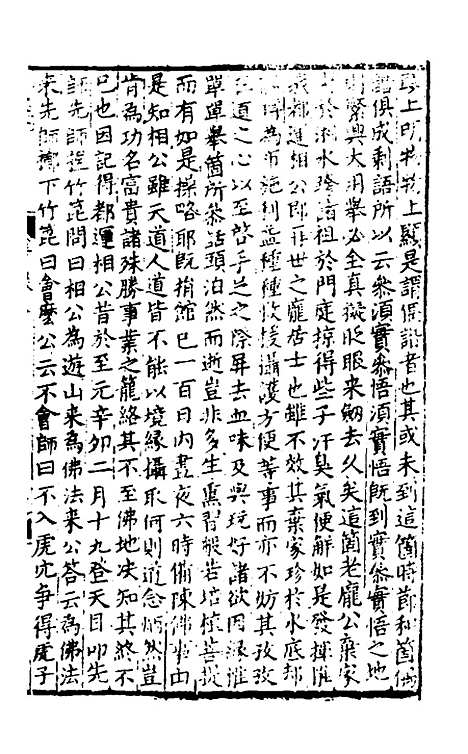 上所物物上顯是謂保語者也其或未到這箇時節和箇
語俱成剩語所以云叅須實叅悟須實悟既到實叅實悟之地
繁興大用舉必全真擬眨眼来劒去久矣這箇老龐公棄家
於水際諸祖於門庭掠得些子汗臭氣便解如是發揮
都運相公即再世之龐居士也雖不效其棄家珍於水底却
時為布施利益種種攸接攝護方便等事而亦不妨其孜孜
道之心以至啓手足之際屏去血味及與玩好諸欲因緣惟
單單舉箇所叅話頭泊然而逝豈非多生熏習般若培植菩提
而有如是操略耶既捐館已一百日内晝夜六時備陳佛事由
是知相公雖天道人道皆不能以境緣攝取何則道念炳然豈
肯為功名富貴諸殊勝事業之籠絡其不至佛地决知其終不
已也因記得都運相公昔於至元辛卯二月十九登天目叩先
師先師竪竹篦問曰相公為遊山来為佛法来公答云為佛法
来先師擲下竹篦曰會麽公云不會師曰不入虎穴爭得虎子